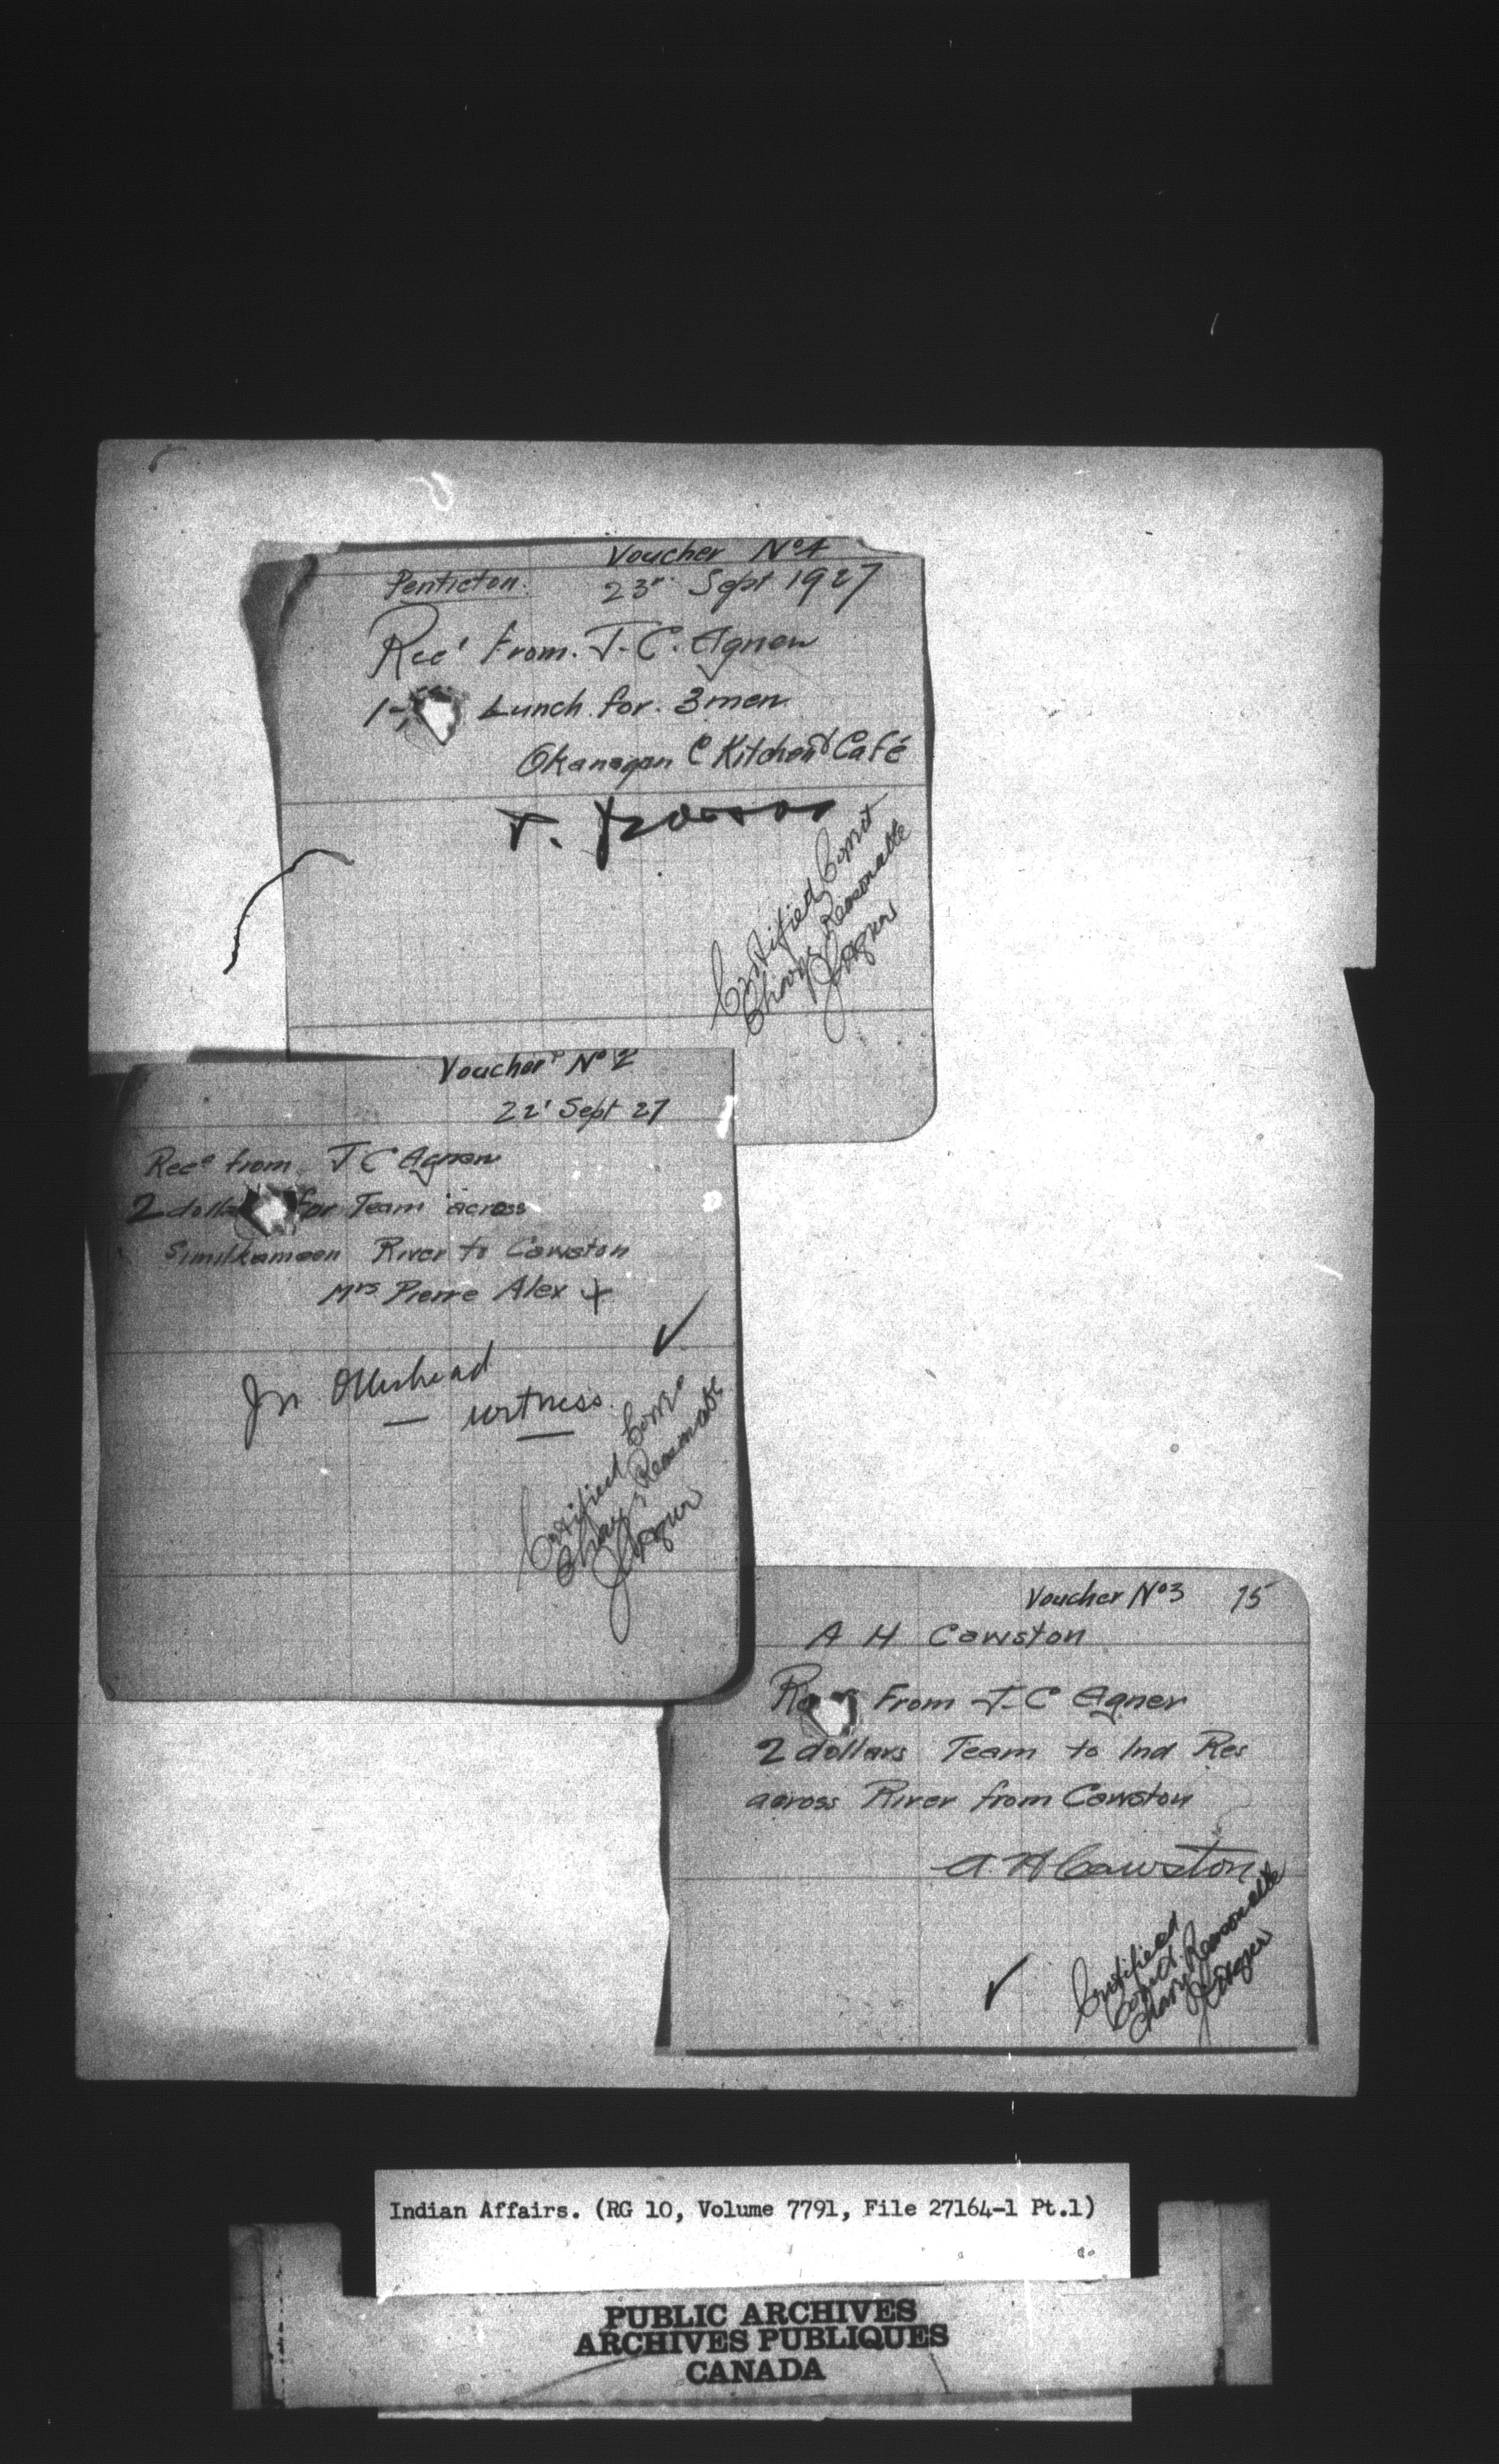 Voucher No 4
Penticton. 23" Sept 1927
Rec' From. J. C. Agnew
Lunch for. 3 men
Okanagan C Kitchen & Café
Certified Correct
Charges Reasonable
JCAgnew
Voucher No 2
22' Sept 27
Recd from J C Agnew
2 dollars for Team across
Similkameen River to Cawston
Mrs Pierre Alex +
witness.
Certified Corr
Charges Reasonable
JCAgnew
Voucher No 3 75
A H Cawston
From J-C Agnew
2 dollars Team to Ind Res
across River from Cawston
A H Cawston
Certified
Correct.
Charges Reasonable
JCAgnew
Indian Affairs. (RG 10, Volume 7791, File 27164-1 Pt.1)
PUBLIC ARCHIVES
ARCHIVES PUBLIQUES
CANADA